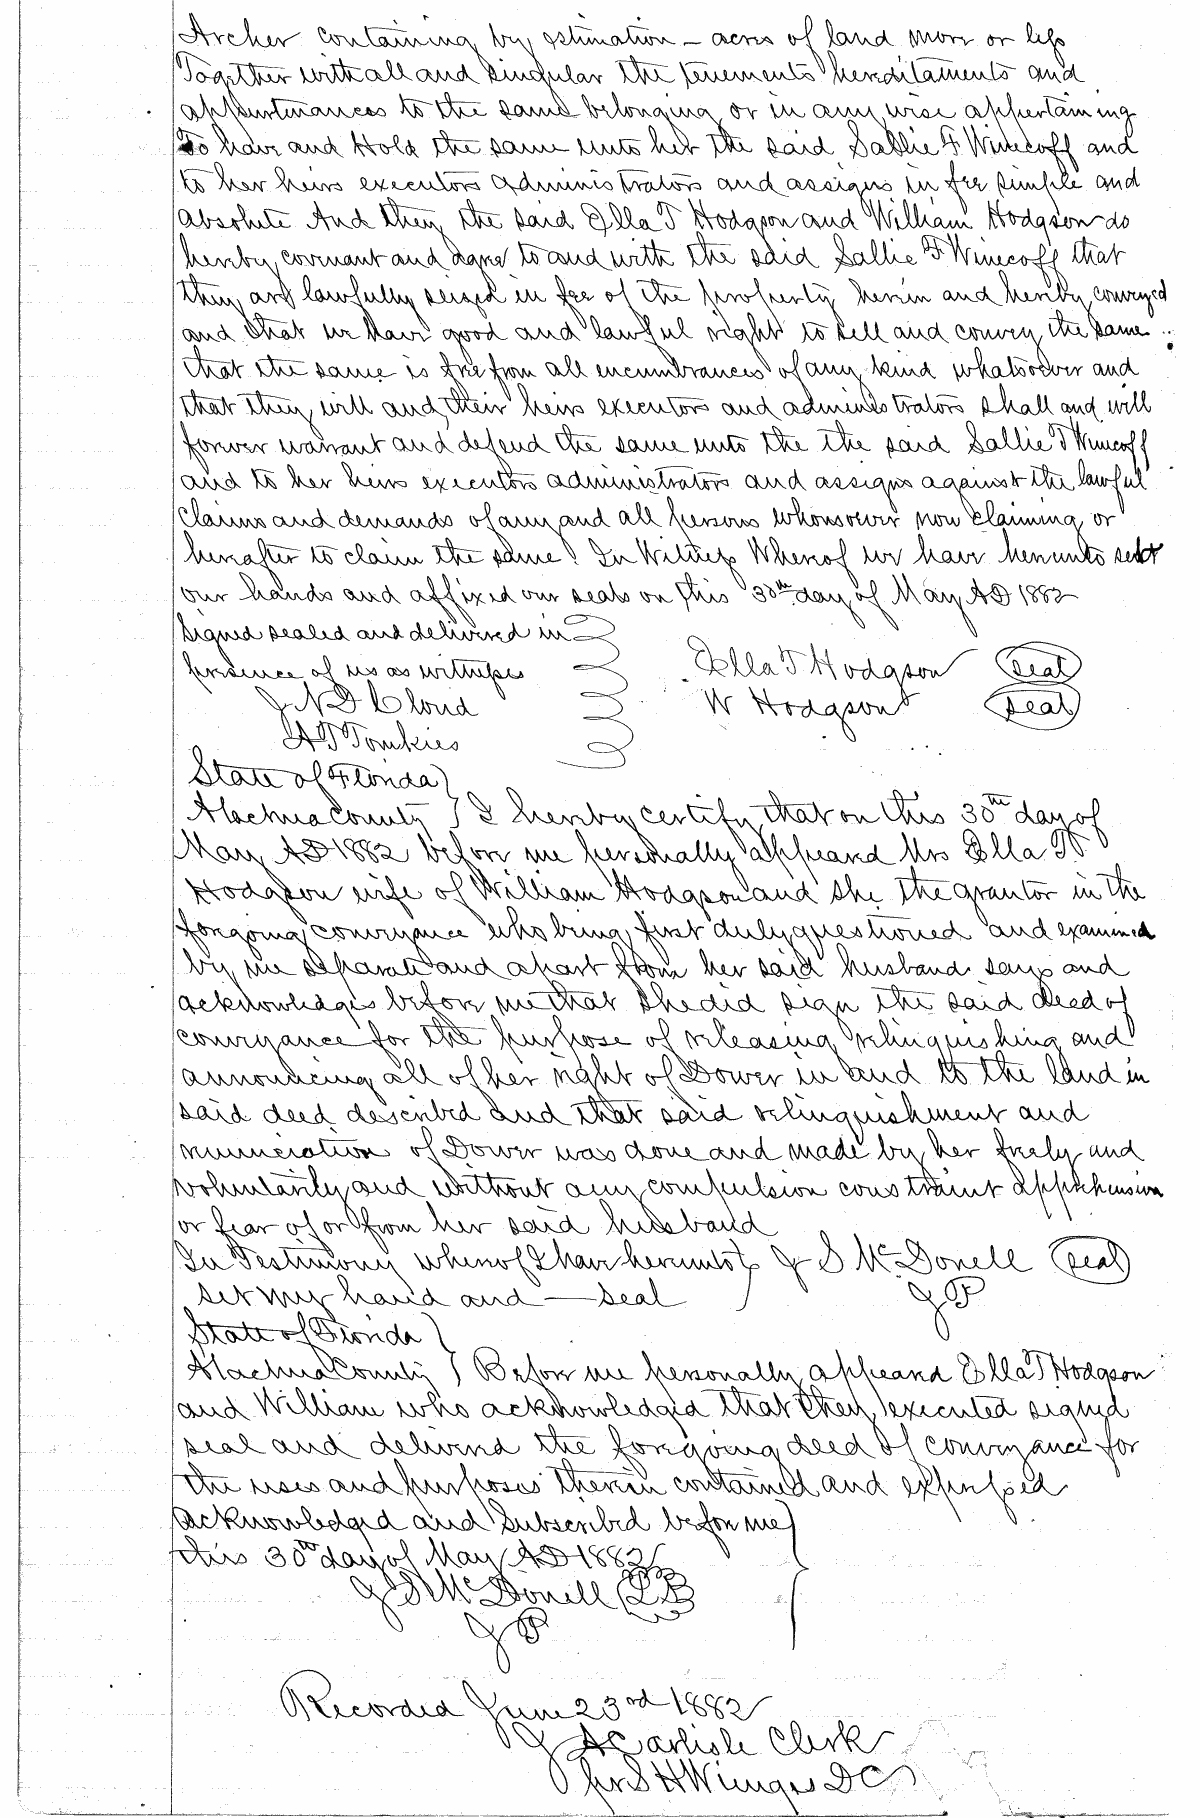 Archer containing by estimation – acres of land more or less
Together with all and singular the tenements hereditaments and
appurtinances to the same belonging or in any wise appertaining
To have and Hold the same unto her the said Sallie F Winecoff and
to her heirs executors administrators and assigns in fee simple and
absolute And they the said Ella T Hodgson and William Hodgson do
hereby covenant and agree to and with the said Sallie F Winecoff that
they are lawfully seized in fee of the property herein and hereby conveyed
and that we have good and lawful right to sell and convey the same
that the same is free from all encumbrances of any kind whatsoever and
that they will and their heirs executors and administrators shall and will
forever warrant and defend the same unto the the said Sallie F Winecoff
and to her heirs executors administrators and assigns against the lawful
claims and demands of any and all persons whomsoever now claiming or
hereafter to claim the same. In Witness Whereof we have hereunto set
our hands and affixed our seals on this 30th day of May AD 1882
Signed sealed and delivered in
presence of us as witness
Ella T Hodgson (seal)
J N D Cloud
W Hodgson (seal)
H T Tomkies
State of Florida
Alachua County } I hereby certify that on this 30th day of
May AD 1882 before me personally appeared Mrs Ella T
Hodgson wife of William Hodgson and she the grantor in the
foregoing conveyance who being first duly questioned and examined
by me separate and apart from her said husband says and
acknowledges before me that she did sign the said deed of
conveyance for the purpose of releasing relinquishing and
announcing all of her right of Dower in and to the land in
said deed described and that said relinquishment and
renunciation of Dower was done and made by her freely and
voluntarily and without any compulsion constraint apprehension
or fear of or from her said husband
In Testimony whereof I have hereunto } J S McDonell (seal)
set my hand and — seal
J P
State of Florida
Alachua County } Before me personally appeared Ella T Hodgson
and William who acknowledged that they executed signed
seal and delivered the foregoing deed of conveyance for
the uses and purposes therein contained and expressed
Acknowledged and Subscribed before me
this 30th day of May AD 1882
J S McDonell
J P
Recorded June 23rd 1882
J A Carlisle Clerk
per S H Wienges DC